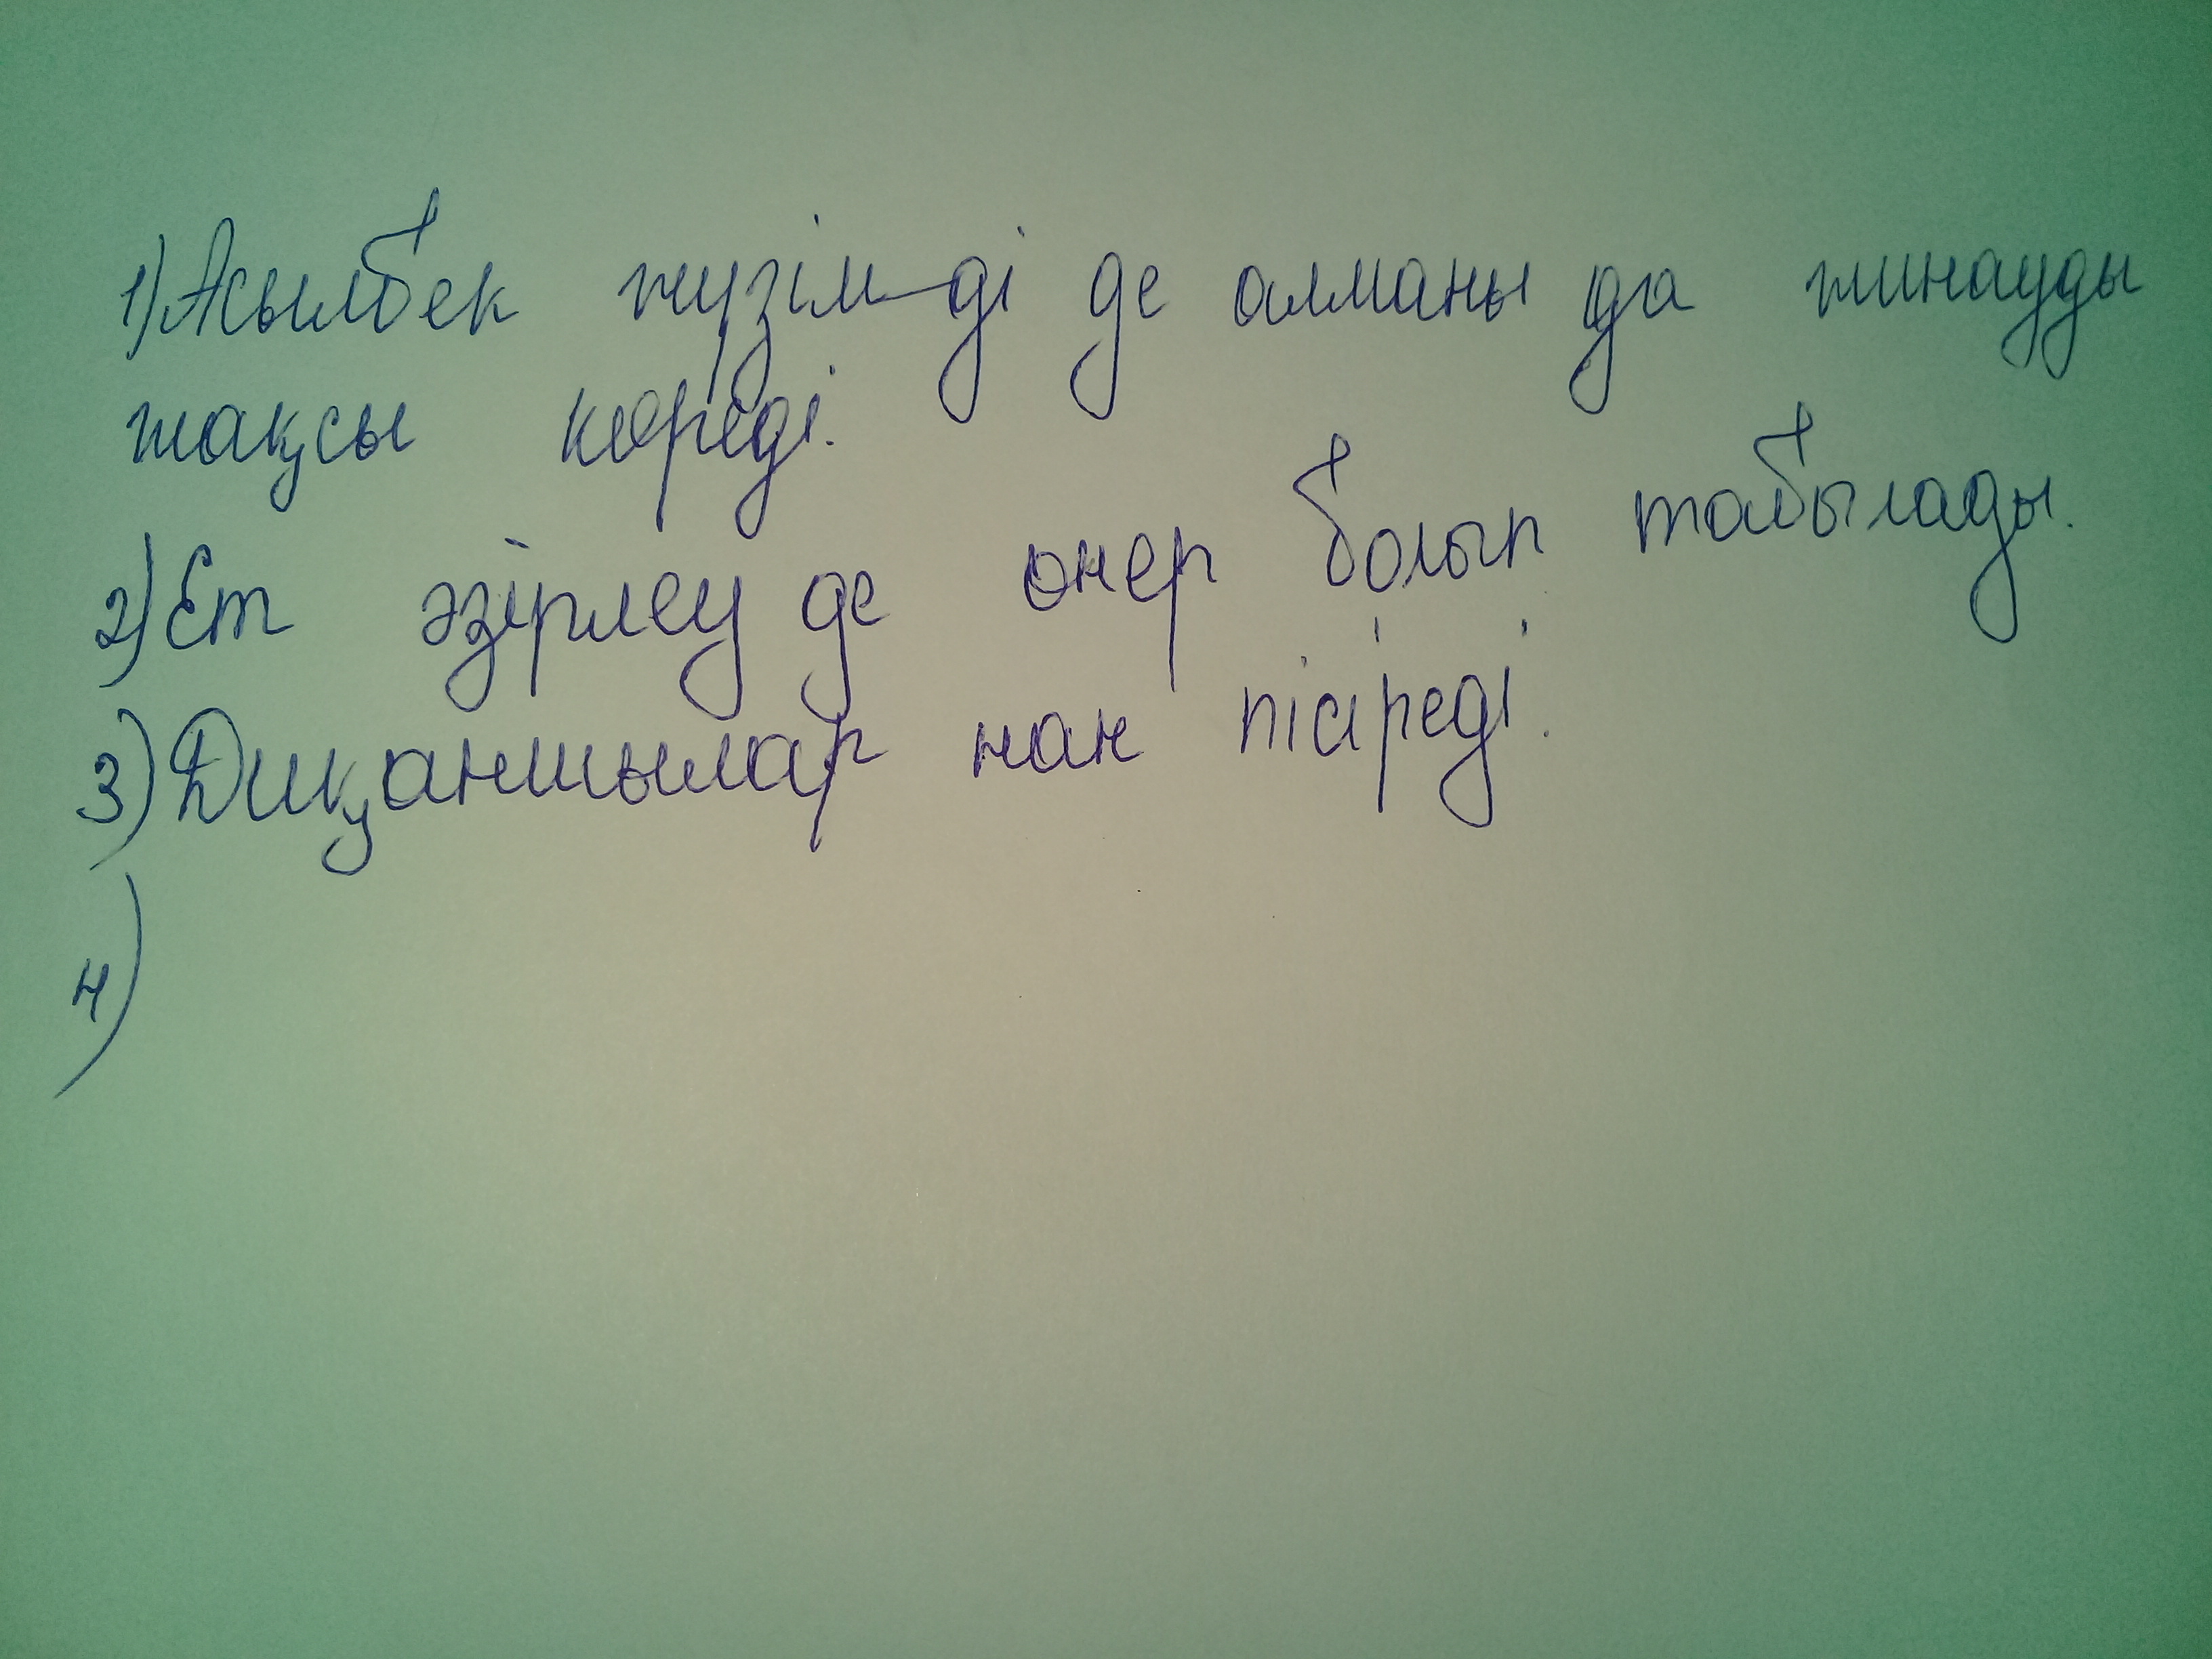 1) Асылбек жүзімді де алманы да жинауды
жақсы көреді.
2) Ет әзірлеу де өнер болып табылады.
3) Диқаншылар нан пісіреді.
4)